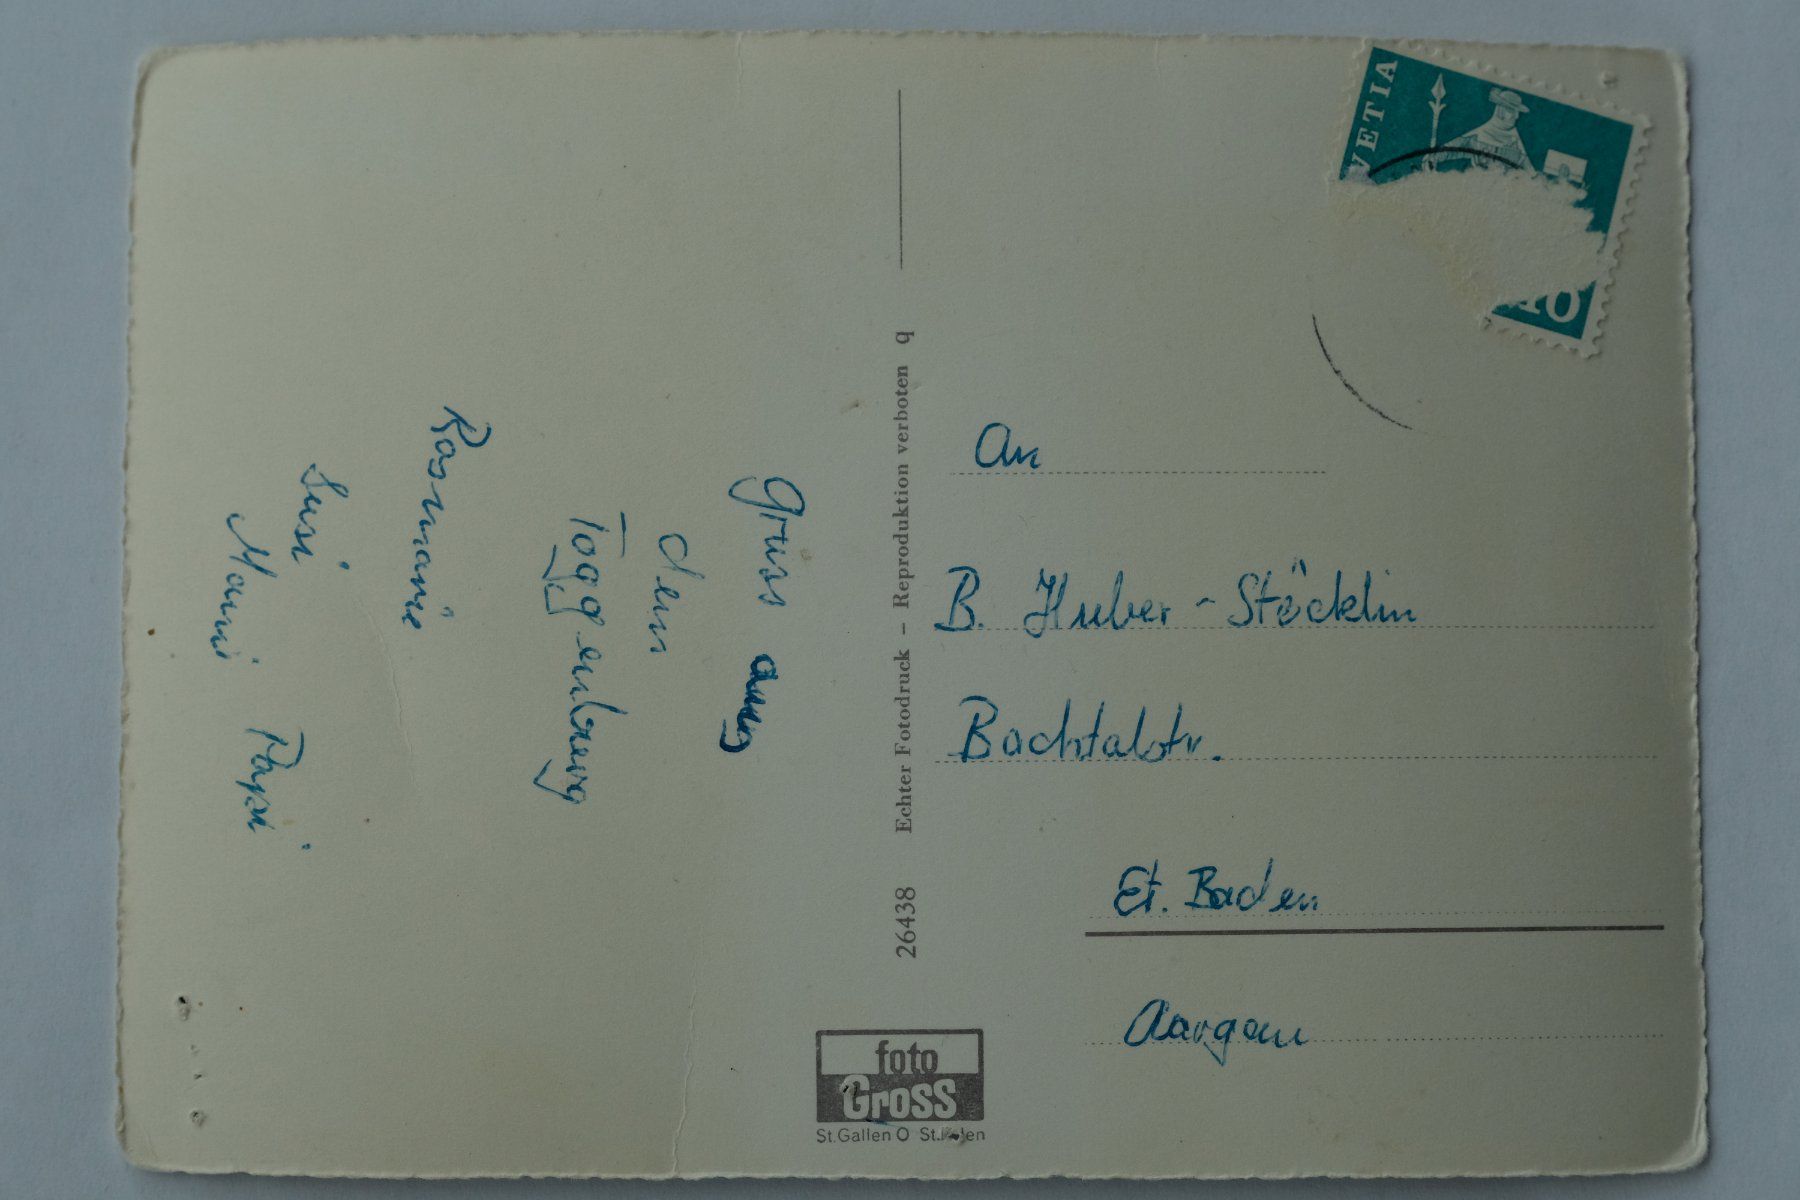 Gruss aus
dem
Toggenburg
Rosmarie
Susi
Mami Papi
26438 Echter Fotodruck – Reproduktion verboten q
foto
Gross
St.Gallen O
VETIA
10
An
B. Huber-Stöcklin
Bachtalstr.
Et. Baden
Aargau